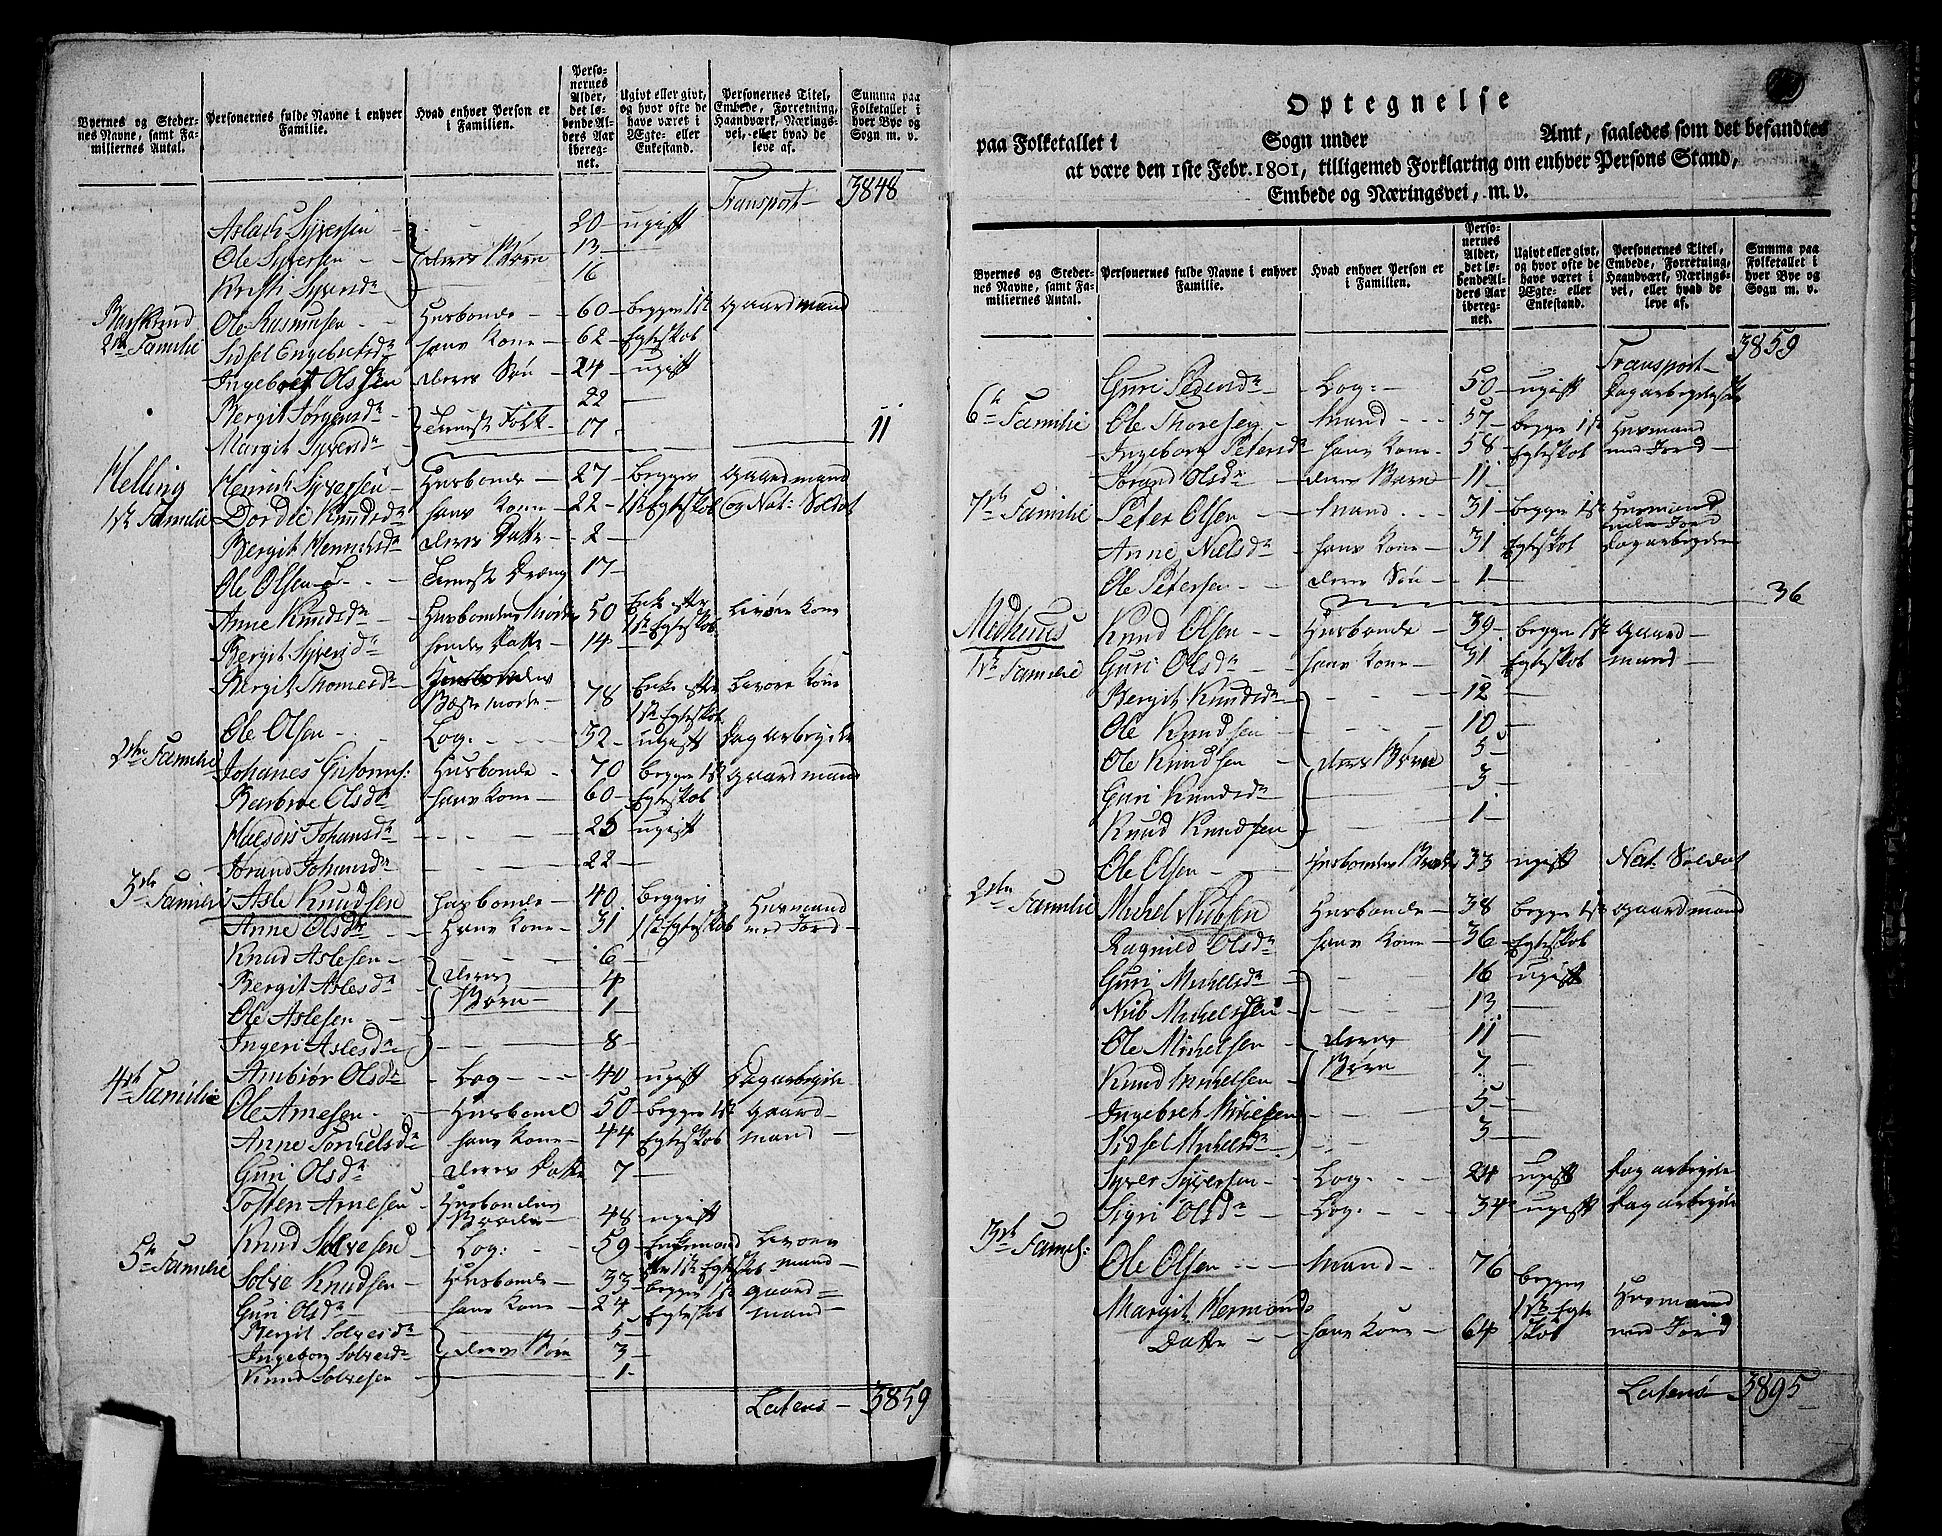 Byernes og Steder-
nes Navne, samt Fa-
miliernes Antal.
Personernes fulde Navne i enhver
Familie.
Hvad enhver Person er
i Familien.
Perso-
nernes
Alder,
det lø-
bende Al-
ders Aar
iberreg-
net.
Ugivt eller givt,
og hvor ofte de
have været i
Ægte- eller
Enkestand.
Personernes Titel,
Embede, Forretning,
Haandværk, Nærings-
vei, eller hvad de
leve af.
Summa paa
Folketallet i
hver Bye og
Sogn m. v.
Transport 3848
Aslach Syversen - 20 - ugift
Ole Syversen - - deres Børn 13 -
Kristi Syversdr 16
Ole Rasmusen - Husbonde - 60 - begge 1ste Gaardmand
2den Familie Sidsel Engebretsdr hans Kone - 62 - Egteskob
Ingebret Olssen deres Søn - 24 - ugift
Bergit Jørgensdr - Tieneste Folk - 22 -
Margit Syversdr 17 - 11
Helling Henrich Syversen - Husbonde - 27 - begges Gaardmand
1ste Familie Dordie Knudsdr hans Kone - 22 - 1ste Egteskob og Nat: Soldat
Bergit Henrichsdr deres Datter - 2 -
Ole Olsen - - Tieneste Dreng 17 -
Anne Knudsdr - Husbondens Moder 50 Enke efter 1ste Egteskob Livøre Kone
Bergit Syversdr - hendes Datter - 14 -
Bergit Thomesdr - Husbondens Bæste moder - 78 Enke efter 1ste Egteskob Livøre Kone
Ole Olsen - - Log: - - 32 - ugift Dagarbeyder
2den Familie Johanes Husbonde - 70 begge 1ste Gaardmand
Barbroe Olsdr hans Kone - 60 - Egteskob
Johansdr - - 25 ugift
Jorand Johansdr - - 22 -
3die Familie Asle Knudsen Husbonde - 40 begges Husmand
Anne Olsdr - Hans Kone - 31 1ste Egteskob med Jord -
Knud Aslesen - 6 -
Bergit Aslesdr - deres 4
Ole Aslesen - - Børn - 1 -
Ingeri Aslesdr - 8 -
Ambiør Olsdr - Log - - - 40 ugift Dagarbeyder
4de Familie Ole Arnesen - - Husbonde 50 - begge 1ste Gaard-
Anne Torkelsdr hans Kone - 44 Egteskob mand -
Guri Olsdr deres Datter 7 -
Tosten Arnesen Husbondens Broder - 48 ugift
Knud Solvesen - Log: - - 59 - Enkemand Livøre
5te Familie Solve Knudsen - Husbonde - 33 begge 1ste Gaard=
Guri Olsdr - hans Kone - 24 Egteskob mand -
Bergit Solvesdr - 5 -
Ingebor Solvesdr deres Børn 3 -
Knud Solvesen - 1 -
Latus - 3859
Optegnelse
paa Folketallet i Sogn under Amt, saaledes som det befandtes
at være den 1ste Febr. 1801, tilligemed Forklaring om enhver Persons Stand,
Embede og Næringsvei, m. v.
Byernes og Steder-
nes Navne, samt Fa-
miliernes Antal.
Personernes fulde Navne i enhver
Familie.
Hvad enhver Person er
i Familien.
Perso-
nernes
Alder,
det lø-
bende Al-
ders Aar
iberreg-
net.
Ugivt eller givt,
og hvor ofte de
have været i
Ægte- eller
Enkestand.
Personernes Titel,
Embede, Forretning,
Haandværk, Nærings-
vei, eller hvad de
leve af.
Summa paa
Folketallet i
hver Bye og
Sogn m. v.
Transport 3859
Guri Pedersdr Log: - 50 - ugift
6te Familie Ole Thoresen - Mand - - - 57 - begge 1ste Husmand
Ingeborn Petersdr hans Kone - 58 - Egteskob med Jord -
Jorand Olsdr - deres Børn - 11 -
7de Familie Peter Olsen - Mand - - - 31 - begge 1ste Husmand med Jord
Anne Nielsdr - hans Kone - 31 Egteskob Dagarbeyder
Ole Petersen - - deres Søn - 1 - 36
Methuus Knud Olsen - - Husbonde - 39 - begge 1ste Gaard -
1ste Familie Guri Olsdr - hans Kone - 31 - Egteskob mand -
Bergit Knudsdr - - - 12 -
Ole Knudsen - - - 10 -
Ole Knudsen - deres Børn 5 -
Guri Knudsdr 3 -
Knud Knudsen - 1 -
Ole Olsen - - Husbondens Broder 33 - ugift Nat. Soldat
2den Familie Michel Nubsen Husbonde - 38 begge 1ste Gaardmand
Ragnild Olsdr hans Kone - 36 - Egteskob
Guri Michelsdr - - 16 ugift
Nub Michelssen - - 13 -
Ole Michelsen - deres 11 -
Knud Michelsen - Børn 7 -
Ingebret Michelsen - - 5 -
Sidsel Michelsdr - - 3 -
Syver Syversen - Log. - - 24 ugift Dagarbeyder
Sigri Olsdr - Log. - - 34 ugift Dagarbeyder
3die Famil: Ole Olsen - - - Mand - - 76 begges
Margit Hermonds
Datter - - hans Kone - 64 1ste Egte skob Husmand med Jord
Latus - 3895